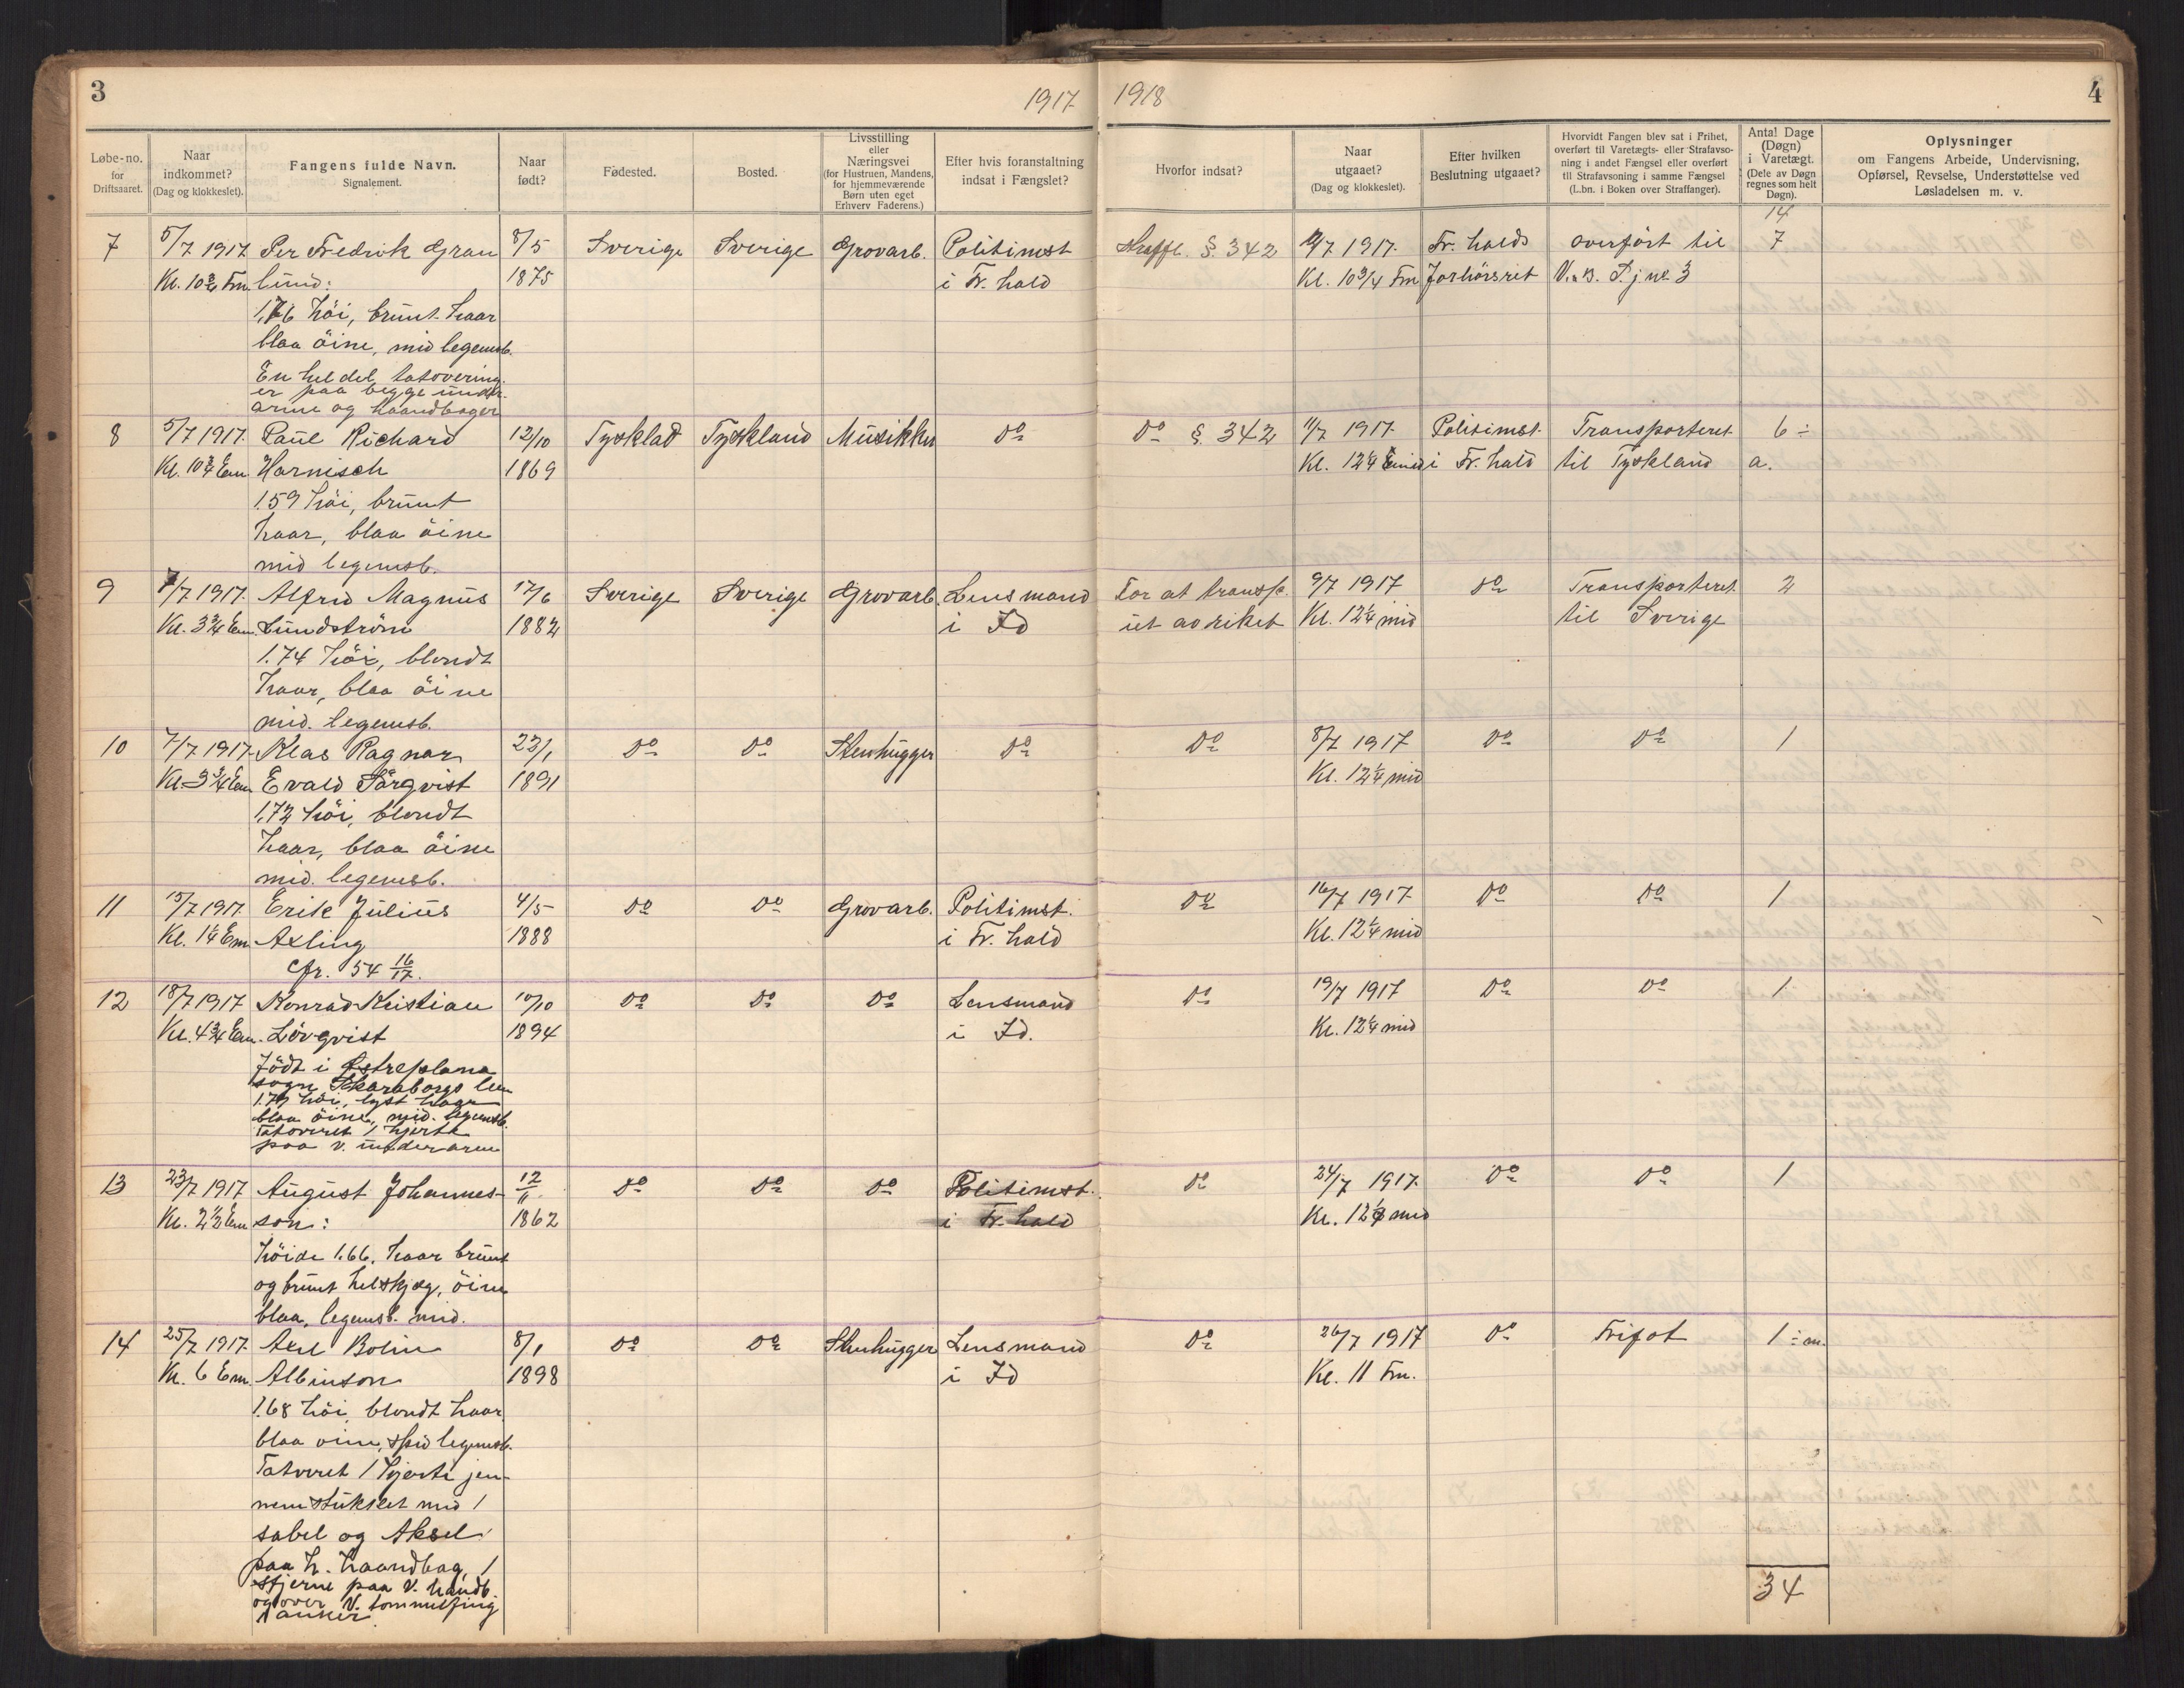 3
1917
1918
4
Løbe-no. for Driftsaaret.
Naar indkommet? (Dag og klokkeslet).
Fangens fulde Navn. Signalement.
Naar født?
Fødested.
Bosted.
Livsstilling eller Næringsvei (for Hustruen, Mandens, for hjemmeværende Børn uten eget Erhverv Faderens.)
Efter hvis foranstaltning indsat i Fængslet?
Hvorfor indsat?
Naar utgaaet? (Dag og klokkeslet).
Efter hvilken Beslutning utgaaet?
Hvorvidt Fangen blev sat i Frihet, overført til Varetægts- eller Strafavsoning i andet Fængsel eller overført til Strafavsoning i samme Fængsel (L.bn. i Boken over Straffanger).
Antal Dage (Døgn) i Varetægt. (Dele av Døgn regnes som helt Døgn).
Oplysninger om Fangens Arbeide, Undervisning, Opførsel, Revselse, Understøttelse ved Løsladelsen m. v.
14
7 5/7 1917 Per Fredrik Gran 8/5 Sverige Sverige Grovarb. Politimst Straffl. § 342 12/7 1917. Fr. halds overført til 7
Kl. 10¾ Fm. lund: 1875 i Fr. hald Kl. 10¾ Fm Forhörsret V. B. P. j. no 3
1,66 höi, brunt haar
blaa öine, mid legemsb.
En hel del tatovering.
er paa begge under.
arme og haandbager
8 5/7 1917. Paul Richard 12/10 Tysklad Tyskland Musikker Do Do § 342 11/7 1917. Politimst. Transporteret 6 ÷
Kl. 10¾ Em Harnisch 1869 Kl. 12¼ mid i Fr. hald til Tyskland a.
1.59 höi, brunt
haar, blaa öine
mid legemsb.
9 7/7 1917. Alfrid Magnus 17/6 Sverige Sverige Grovarb. Lensmand For at transp. 9/7 1917 Do Transporteret 2
Kl. 3¾ Em. Lundström 1882 i Id ut av riket Kl. 12¼ mid til Sverige
1.74 höi, blondt
haar, blaa öine
mid. legemsb.
10 7/7 1917. Klas Ragnar 23/1 Do Do Stenhugger Do Do 8/7 1917 Do Do 1
Kl 3¾ Em Evald Pärqvist 1891 Kl. 12¼ mid
1,72 höi, blondt
haar, blaa öine
mid. legemsb.
11 15/7 1917. Erik Julius 4/5 Do Do Grovarb. Politimst. Do 16/7 1917 Do Do 1
Kl. 1¼ Em. Axling 1888 i Fr. hald Kl. 12¼ mid
cfr. 54 16/17.
12 18/7 1917 Konrad Kristian 10/10 Do Do Do Lensmand Do 19/7 1917 Do Do 1
Kl. 4¾ Em. Lövqvist 1894 i Id. Kl. 12¼ mid
födt i Östreplana
sogn Skaraborgs len
höi, lyst haar
blaa öine, mid. legemsb.
Tatoveret 1 hjerte
paa v. underarm
13 23/7 1917 August Johannes- 12/11 Do Do Do Politimst. Do 24/7 1917. Do Do 1
Kl. 2½ Em son: 1862 i Fr. hald Kl. 12¼ mid
höide 1.66, haar brunt
og brunt helskjæg, öine
blaa, legemsb. mid.
14 25/7 1917. Axel Bolin 8/1 Do Do Stenhugger Lensmand Do 26/7 1917 Do Frifot 1 ÷ an.
Kl. 6 Em. Albinson 1898 i Id Kl. 11 Fm.
1.68 höi, blondt haar
blaa öine, spid legemsb.
Tatoveret 1 hjerte jen-
nem stukket med 1
sabel og Aksel
paa h. haandbag, 1
stjerne paa v. haandb.
og over v. tommelfing
1 anker
34